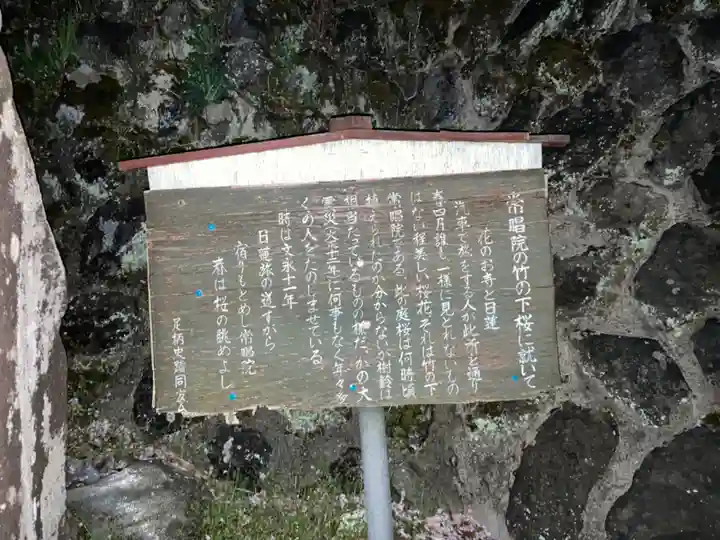 常唱院の竹の下桜に就いて
花のお寺と日蓮
汽車で旅をする人が此所を通り
春四月誰も一様に見とれないもの
はない程美しい桜花それは竹の下
常唱院である、此の庭桜は何時頃
植えられたのか分からないが樹齢は
相当たっているものの様だ、かの大
震災大正十二年に何事もなく年々多
くの人をたのしませている。
時は文永十一年
日蓮旅の道すがら
宿りもとめし常唱院
春は桜の眺めよし
足柄史談同好会